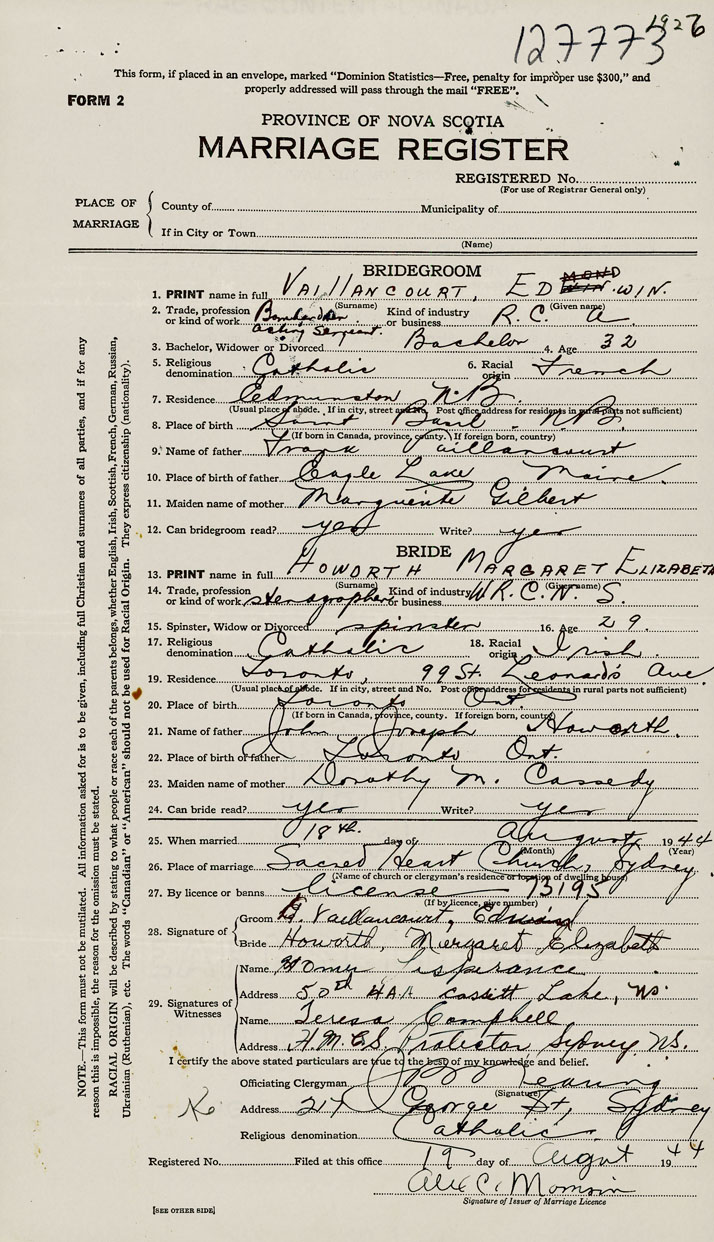 127773 1926
This form, if placed in an envelope, marked "Dominion Statistics—Free, penalty for improper use $300," and
properly addressed will pass through the mail "FREE".
FORM 2
PROVINCE OF NOVA SCOTIA
MARRIAGE REGISTER
REGISTERED No.
(For use of Registrar General only)
PLACE OF MARRIAGE
County of Municipality of
If in City or Town
(Name)
BRIDEGROOM
1. PRINT name in full VAILLANCOURT, EDWIN.
(Surname) (Given name)
2. Trade, profession or kind of work Bombardier acting Sergeant. Kind of industry or business R.C.A.
3. Bachelor, Widower or Divorced Bachelor 4. Age 32
5. Religious denomination Catholic 6. Racial origin French
7. Residence Edmunston N.B.
(Usual place of abode. If in city, street and No. Post office address for residents in rural parts not sufficient)
8. Place of birth Saint Basil - N.B.
(If born in Canada, province, county. If foreign born, country)
9. Name of father Frank Vaillancourt
10. Place of birth of father Eagle Lake Maine.
11. Maiden name of mother Marguerite Gilbert
12. Can bridegroom read? yes Write? yes
BRIDE
13. PRINT name in full HOWORTH MARGARET ELIZABETH
(Surname) (Given name)
14. Trade, profession or kind of work stenographer Kind of industry or business W.R.C.N.S.
15. Spinster, Widow or Divorced spinster 16. Age 29.
17. Religious denomination Catholic 18. Racial origin Irish.
19. Residence Toronto, 99 St. Leonard's Ave.
(Usual place of abode. If in city, street and No. Post office address for residents in rural parts not sufficient)
20. Place of birth Toronto Ont.
(If born in Canada, province, county. If foreign born, country)
21. Name of father John Joseph Howorth.
22. Place of birth of father Toronto Ont.
23. Maiden name of mother Dorothy M. Cassedy
24. Can bride read? yes Write? yes
25. When married 18th. day of August, 1944
(Month) (Year)
26. Place of marriage Sacred Heart Church, Sydney
(Name of church or clergyman's residence or location of dwelling house)
27. By licence or banns license 73195
(If by licence, give number)
28. Signature of
Groom Vaillancourt, Edwin
Bride Howorth, Margaret Elizabeth
29. Signatures of Witnesses
Name
Address 50th HAA Lake, NS.
Name Teresa Campbell
Address H.M.C.S. Protector Sydney N.S.
I certify the above stated particulars are true to the best of my knowledge and belief.
Officiating Clergyman
(Signature)
Address George St, Sydney
Religious denomination Catholic.
Registered No. Filed at this office 19 day of August 1944
Alex C.
Signature of Issuer of Marriage Licence
[SEE OTHER SIDE]
NOTE.—This form must not be mutilated. All information asked for is to be given, including full Christian and surnames of all parties, and if for any
reason this is impossible, the reason for the omission must be stated.
RACIAL ORIGIN will be described by stating to what people or race each of the parents belongs, whether English, Irish, Scottish, French, German, Russian,
Ukrainian (Ruthenian), etc. The words "Canadian" or "American" should not be used for Racial Origin. They express citizenship (nationality).